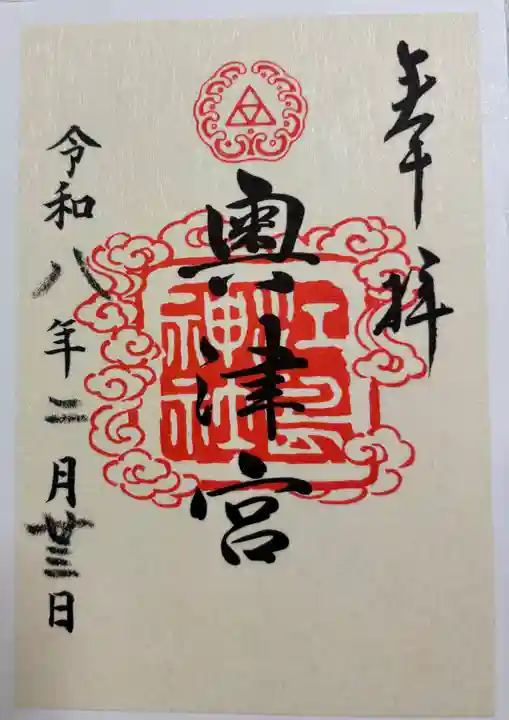 奉拝
奥津宮
江島
神社
令和八年二月廿三日